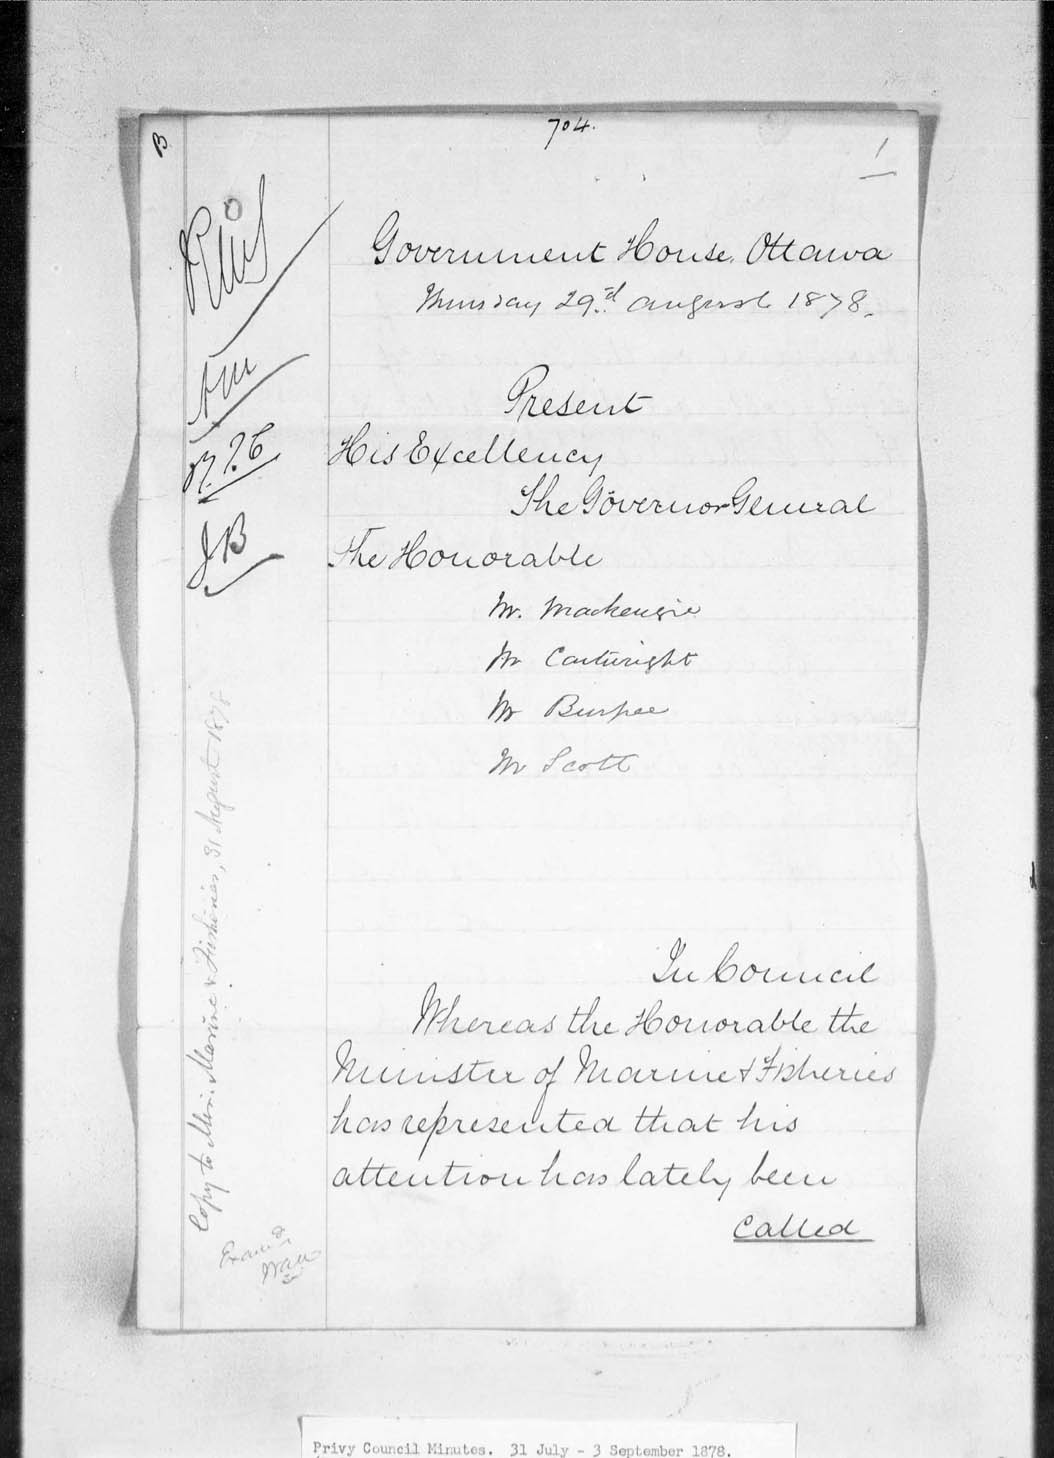 B
704.
1
Government House, Ottawa
Thursday 29.d August 1878.
Present
His Excellency
The Governor General
The Honorable
Mr. Mackenzie
Mr Cartwright
Mr Burpee
Mr Scott
In Council
Whereas the Honorable the
Minister of Marine & Fisheries
has represented that his
attention has lately been
called
AM
R.J.C
JB
Copy to Min. Marine & Fisheries, 31 August 1878
Exam'd
Privy Council Minutes. 31 July - 3 September 1878.